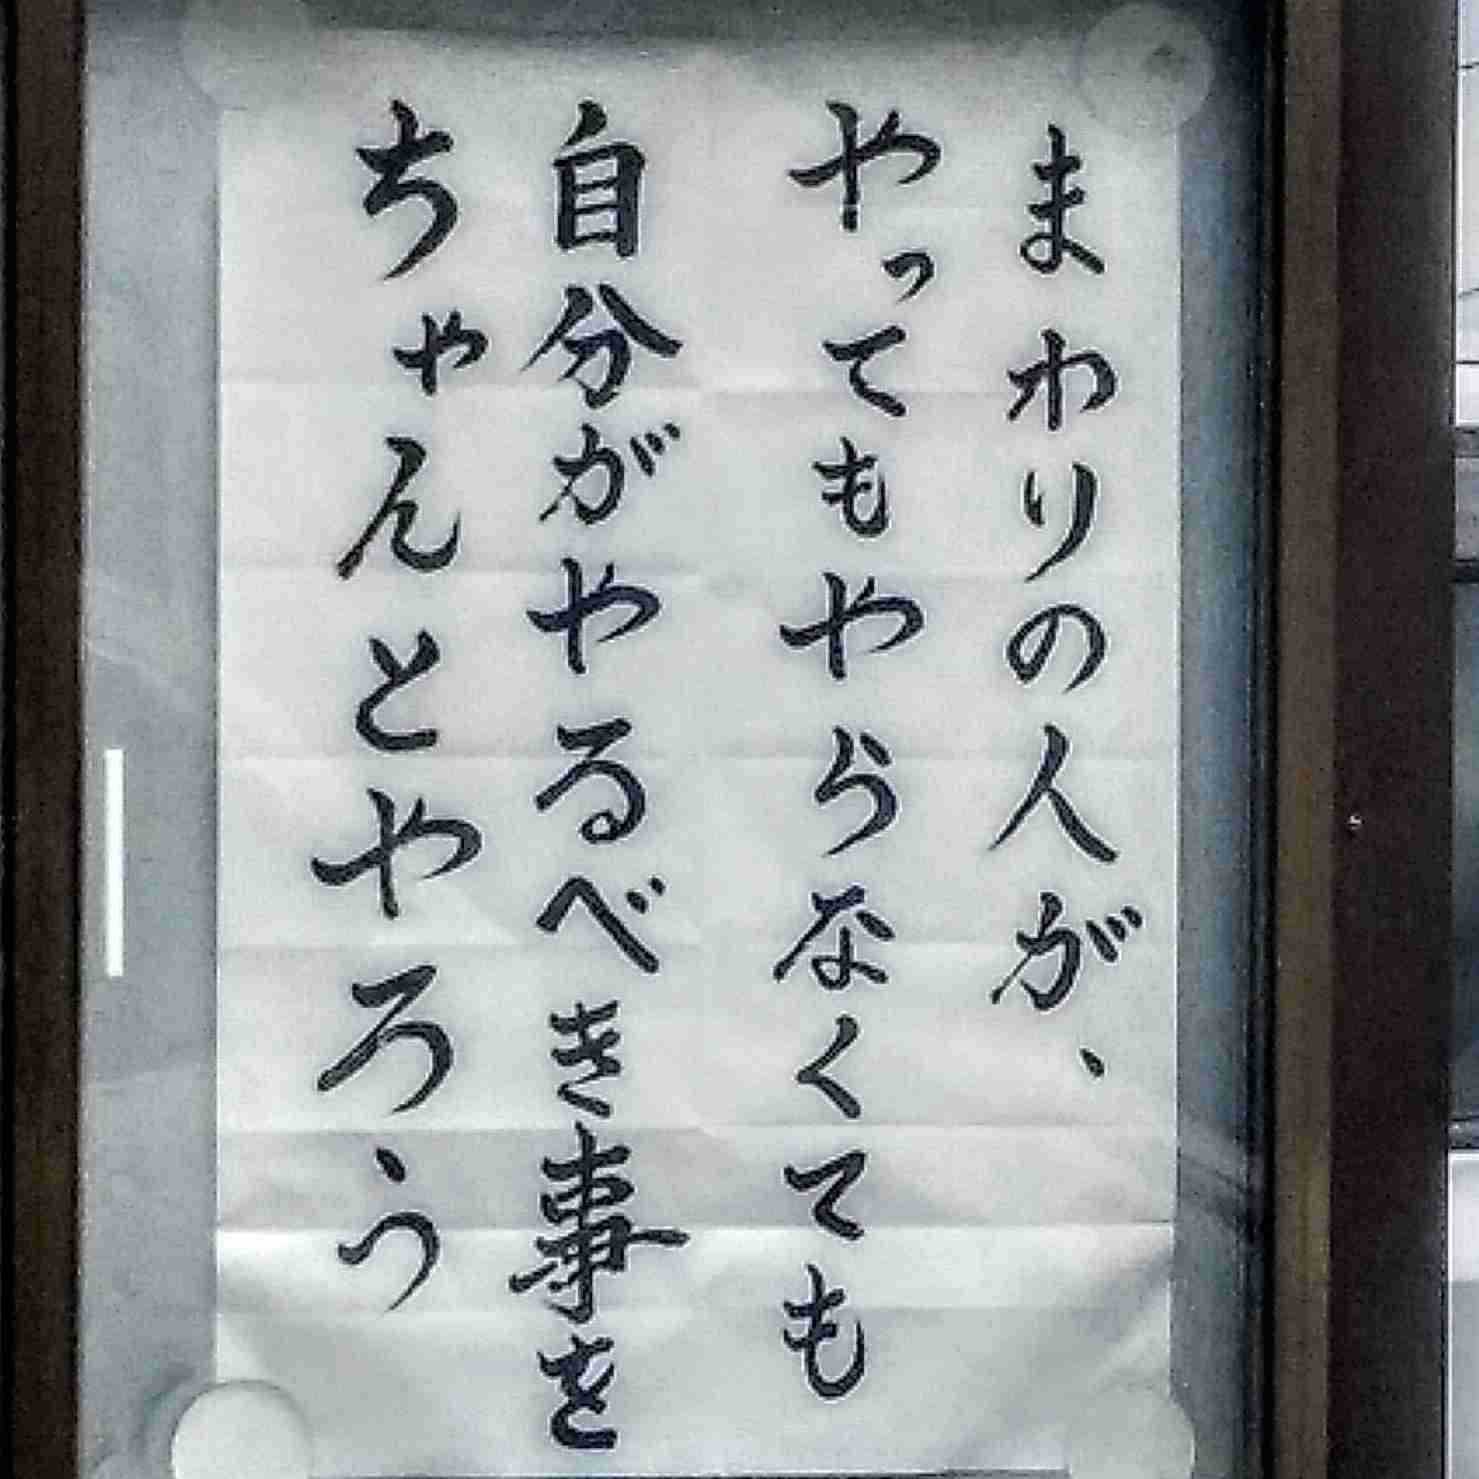 まわりの人が、
やってもやらなくても
自分がやるべき事を
ちゃんとやろう